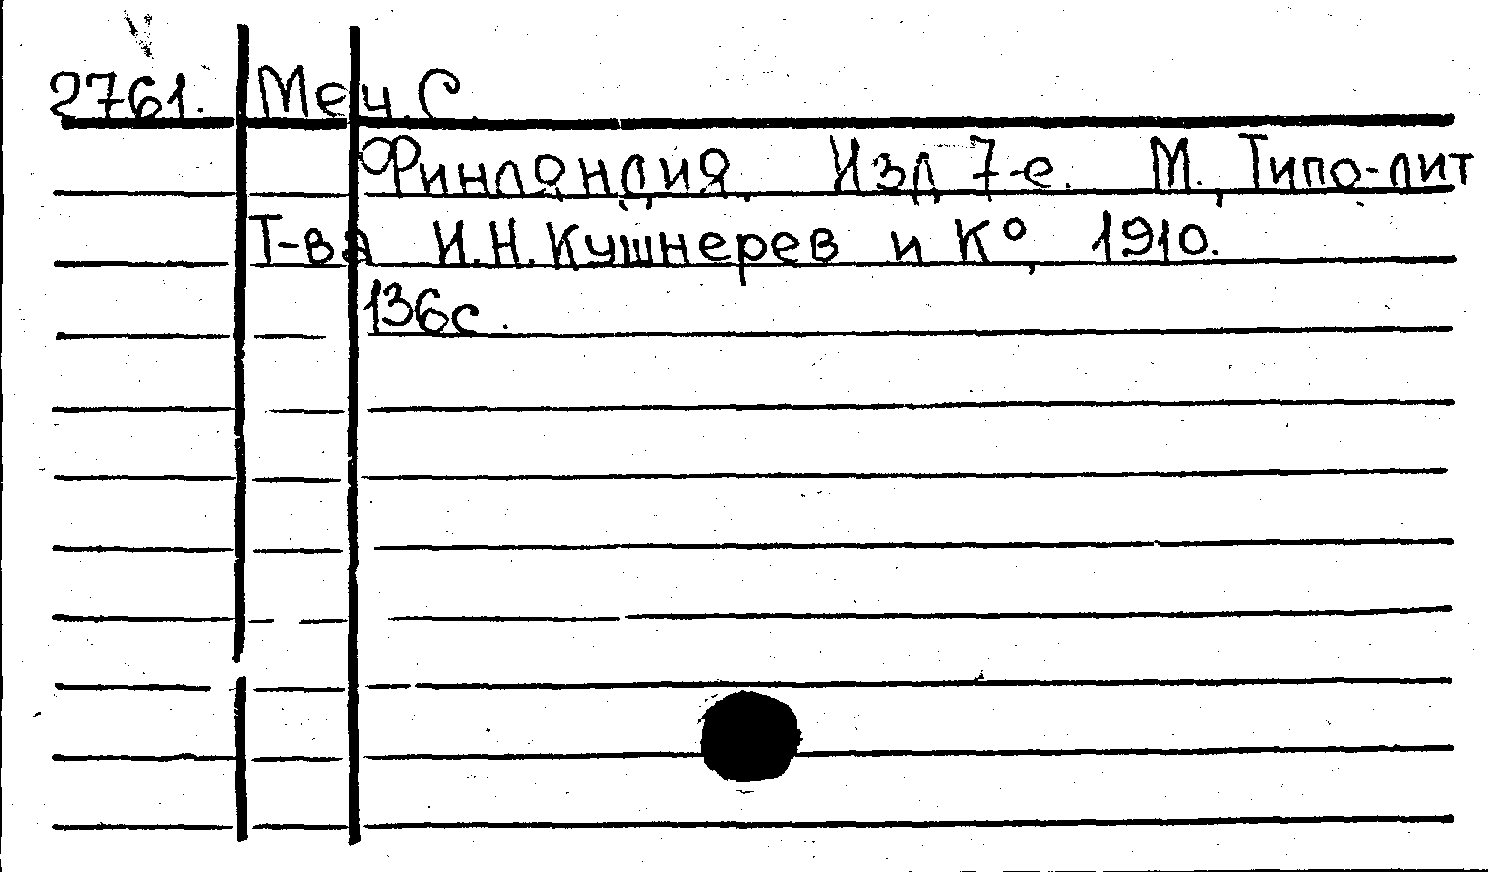 2761. Меч. С.
Финляндия. Изд 7-е. М., Типо-лит
Т-ва И.Н.Кушнерев и К°, 1910.
136с.